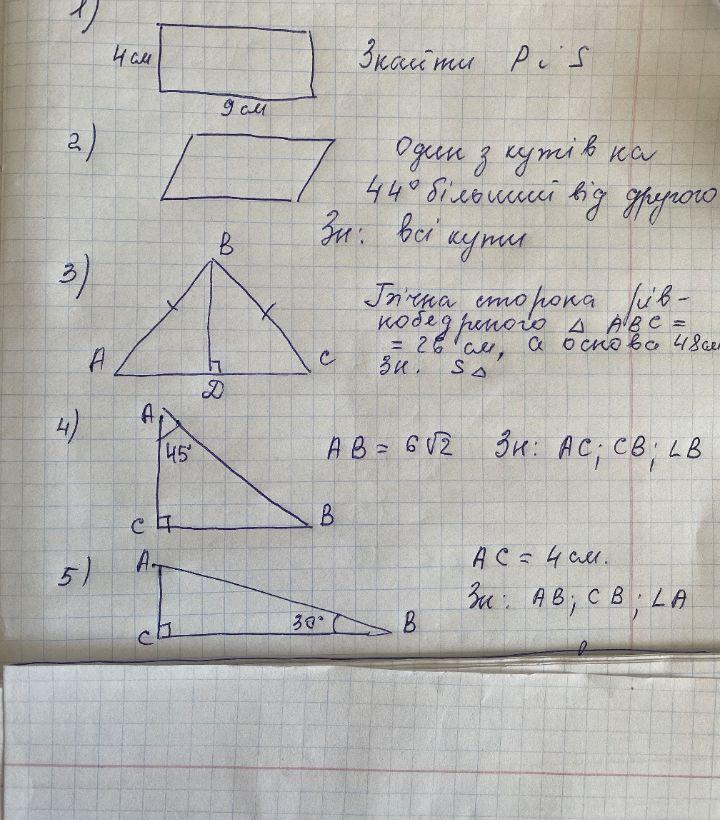 1)
4 см
9 см
Знайти P i S
2)
Один з кутів на
44° більший від другого
Зн: всі кути
3)
B
A
C
D
Бічна сторона рів-
нобедреного △ ABC =
= 26 см, а основа 48 см
Зн. S△
4)
A
45°
C
B
AB = 6√2 Зн: AC; CB; ∠B
5)
A
C
30°
B
AC = 4 см.
Зн: AB; CB; ∠A